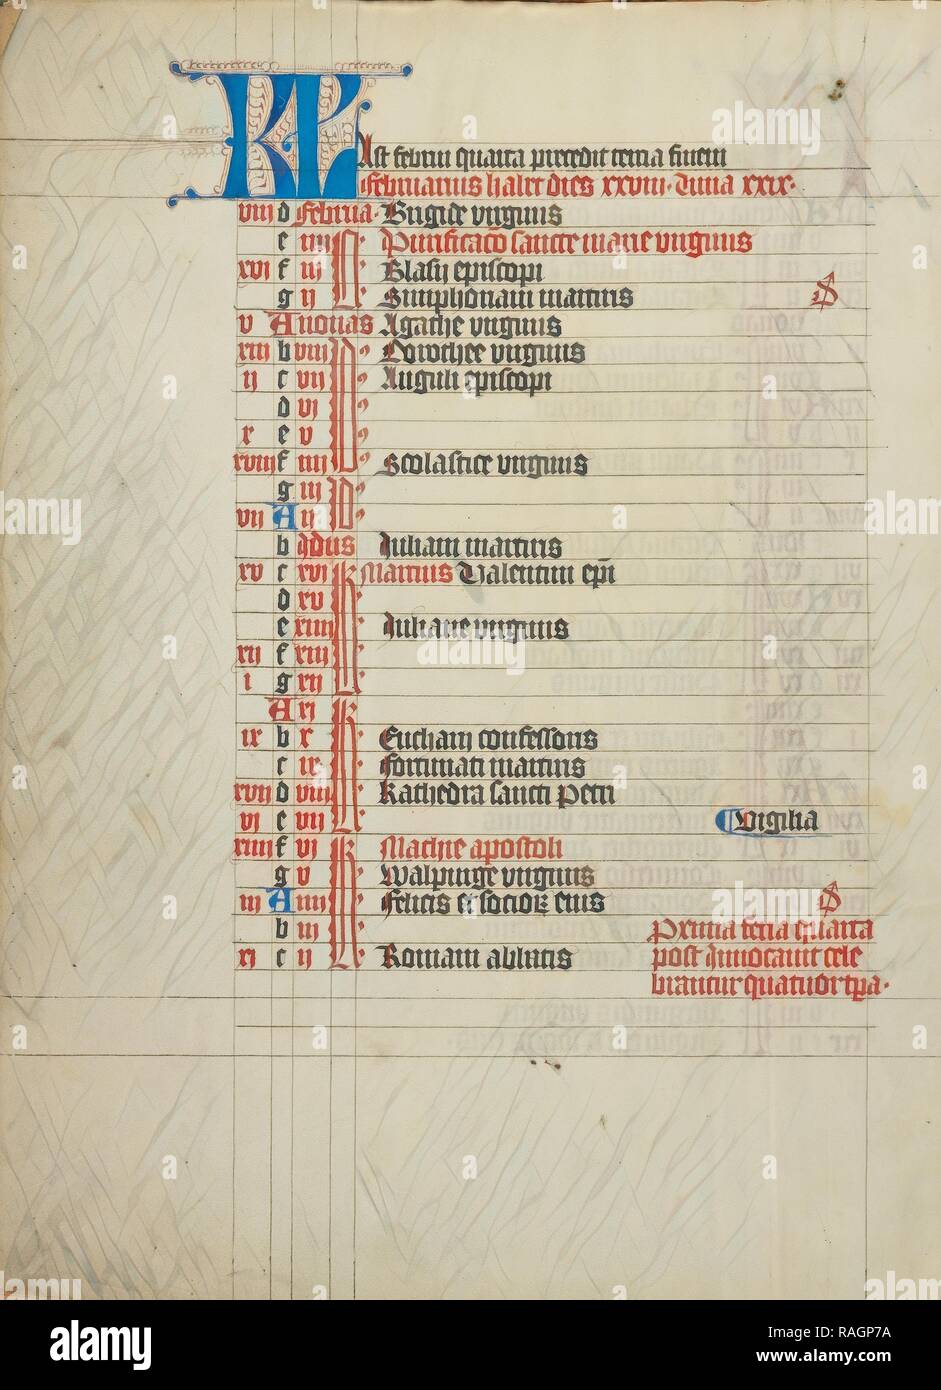 KL Ast februi quarta precedit tercia finem
februarius habet dies xxviii. Luna xxix.
viii d februa. Brigide virginis
e iiii N. Purificaco sancte marie virginis
xvi f iii Blasii episcopi
g ii Simphoriani martiris
v A nonas Agathe virginis
xiii b viii Dorothee virginis
ii c vii Auguli episcopi
d vi
x e v
xviii f iiii Scolastice virginis
g iii
vii A ii
b ydus Juliani martiris
xv c xvi Martius Valentini epi
d xv
e xiiii Juliane virginis
xii f xiii
i g xii
A xi
ix b x Eucharii confessoris
c ix fortunati martiris
xvii d viii kathedra sancti petri
vi e vii vigilia
xiiii f vi Mathie apostoli
g v Walpurge virginis
iii A iiii felicis et socior eius
b iii Prima feria quarta
xi c ii Romani abbatis post Invocavit cele
brantur quatuor tpa.
alamy
Image ID: RAGP7A
www.alamy.com